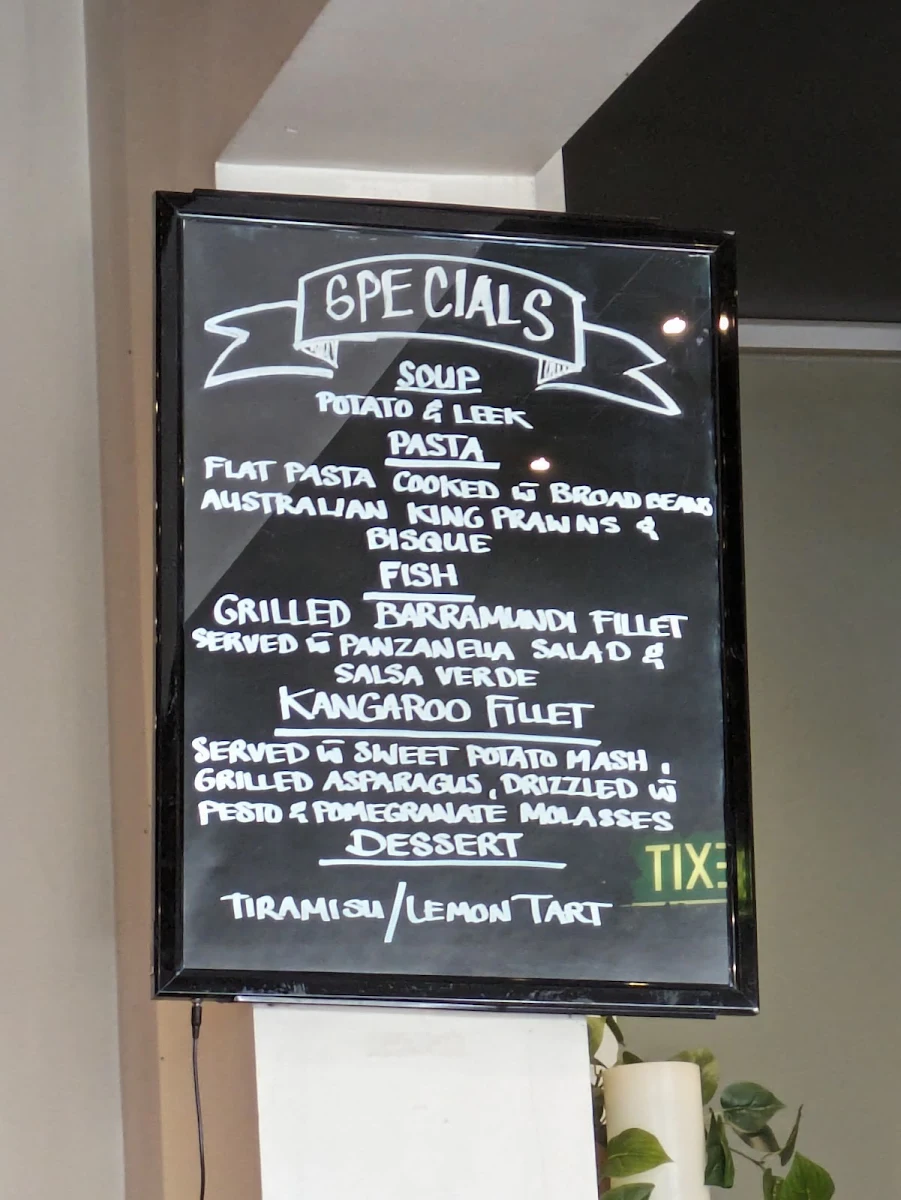 SPECIALS
SOUP
POTATO & LEEK
PASTA
FLAT PASTA COOKED w̅ BROAD BEANS
AUSTRALIAN KING PRAWNS &
BISQUE
FISH
GRILLED BARRAMUNDI FILLET
SERVED w̅ PANZANELLA SALAD &
SALSA VERDE
KANGAROO FILLET
SERVED w̅ SWEET POTATO MASH,
GRILLED ASPARAGUS, DRIZZLED w̅
PESTO & POMEGRANATE MOLASSES
DESSERT
TIRAMISU/LEMON TART
EXIT